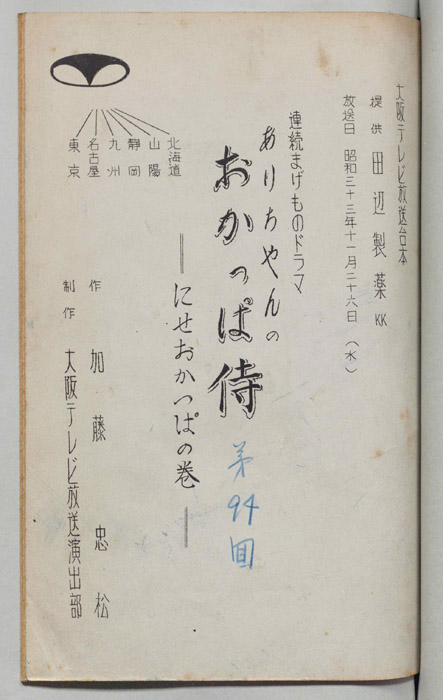 大阪テレビ放送台本
提供 田辺製薬KK
放送日 昭和三十三年十一月二十六日(水)
連続まげものドラマ
ありちゃんの
おかっぱ侍 第94回
――にせおかっぱの巻――
北海道
山陽
静岡
九州
名古屋
東京
作 加藤忠松
制作 大阪テレビ放送演出部